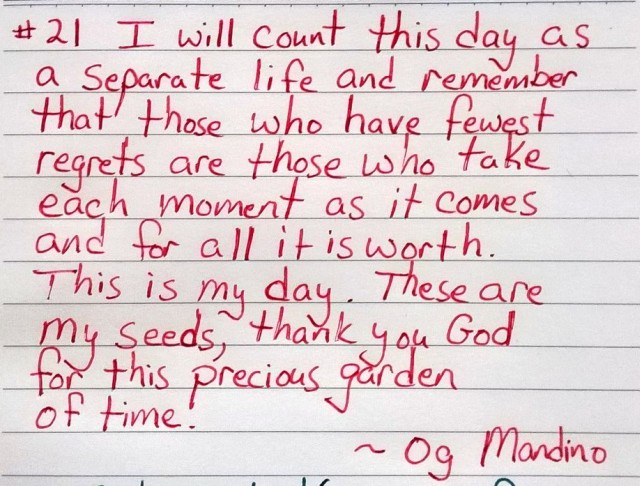 #21 I will count this day as
a separate life and remember
that those who have fewest
regrets are those who take
each moment as it comes
and for all it is worth.
This is my day. These are
my seeds, thank you God
for this precious garden
of time!
~ Og Mandino